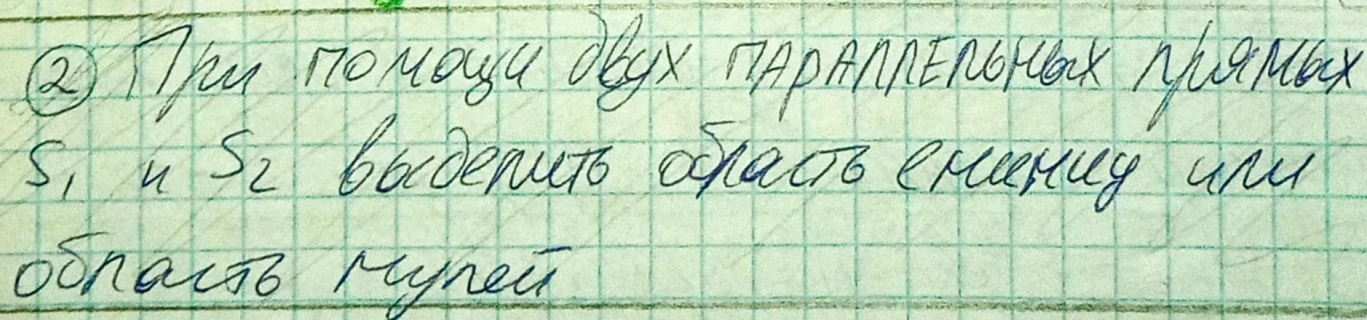 ② При помощи двух параллельных прямых
S₁ и S₂ выделить область единиц или
область нулей